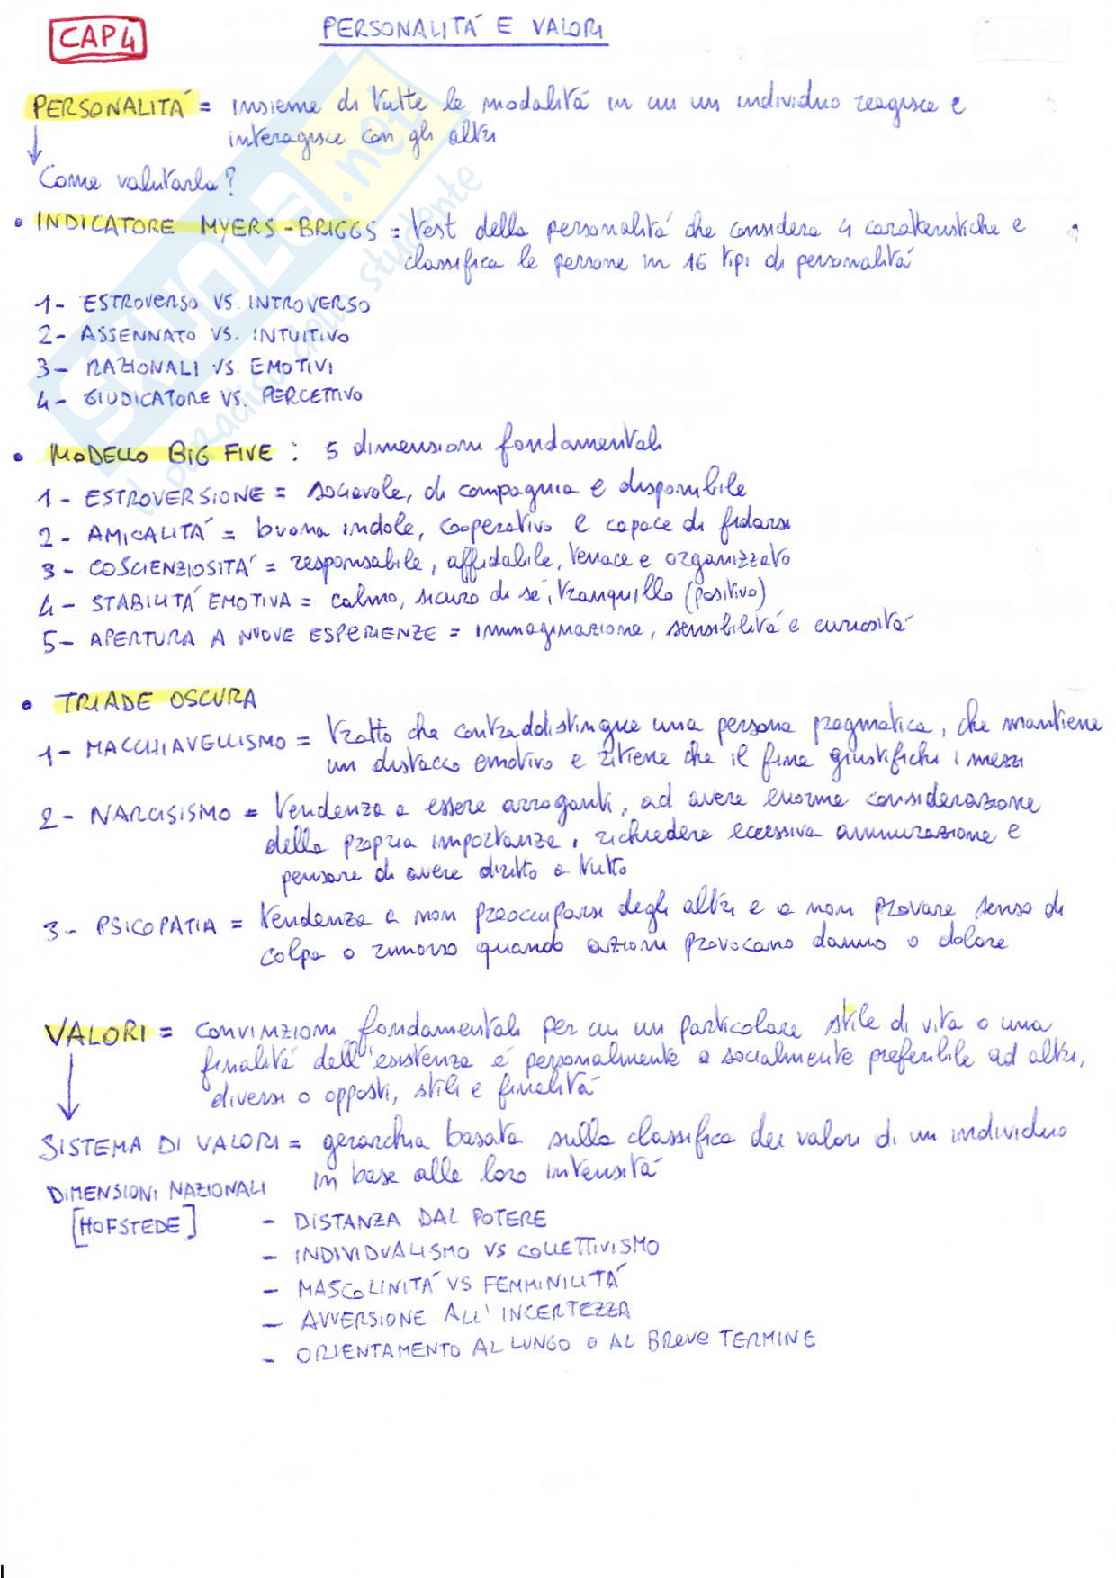 CAP 4
PERSONALITÁ E VALORI
PERSONALITÁ = insieme di tutte le modalitá in cui un individuo reagisce e
interagisce con gli altri
Come valutarla?
• INDICATORE MYERS-BRIGGS = test della personalitá che considera 4 caratteristiche e
classifica le persone in 16 tipi di personalitá
1- ESTROVERSO VS. INTROVERSO
2- ASSENNATO VS. INTUITIVO
3- RAZIONALI VS EMOTIVI
4- GIUDICATORE VS. PERCETTIVO
• MODELLO BIG FIVE : 5 dimensioni fondamentali
1- ESTROVERSIONE = socievole, di compagnia e disponibile
2- AMICALITÁ = buona indole, cooperativo e capace di fidarsi
3- COSCIENZIOSITÁ = responsabile, affidabile, tenace e organizzato
4- STABILITÁ EMOTIVA = calmo, sicuro di sé, tranquillo (positivo)
5- APERTURA A NUOVE ESPERIENZE = immaginazione, sensibilitá e curiositá
• TRIADE OSCURA
1- MACCHIAVELLISMO = tratto che contraddistingue una persona pragmatica, che mantiene
un distacco emotivo e ritiene che il fine giustifichi i mezzi
2- NARCISISMO = tendenza a essere arroganti, ad avere enorme considerazione
della propria importanza, richiedere eccessiva ammirazione e
pensare di avere diritto a tutto
3- PSICOPATIA = tendenza a non preoccuparsi degli altri e a non provare senso di
colpa o rimorso quando azioni provocano danno o dolore
VALORI = convinzioni fondamentali per cui un particolare stile di vita o una
finalitá dell'esistenza é personalmente o socialmente preferibile ad altri,
diversi o opposti, stili e finalitá
SISTEMA DI VALORI = gerarchia basata sulla classifica dei valori di un individuo
in base alle loro intensitá
DIMENSIONI NAZIONALI
[HOFSTEDE]
- DISTANZA DAL POTERE
- INDIVIDUALISMO VS COLLETTIVISMO
- MASCOLINITÁ VS FEMMINILITÁ
- AVVERSIONE ALL'INCERTEZZA
- ORIENTAMENTO AL LUNGO O AL BREVE TERMINE